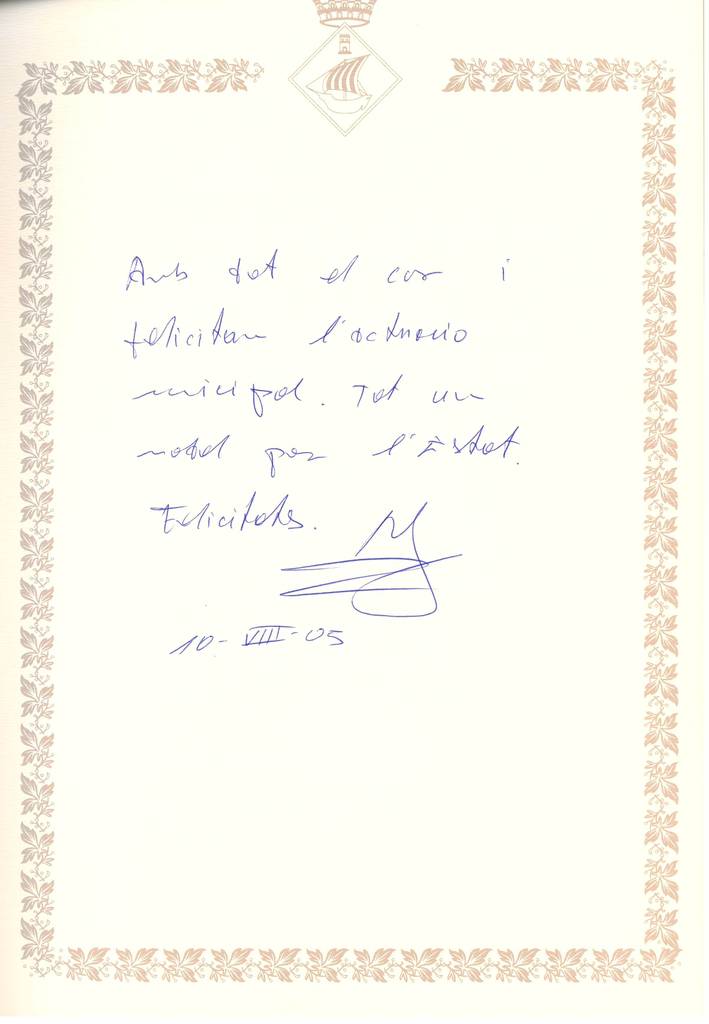 Amb tot el cor i
felicitam l'actuacio
municipal. Tot un
model per l'Estat.
Felicitats.
10-VIII-05